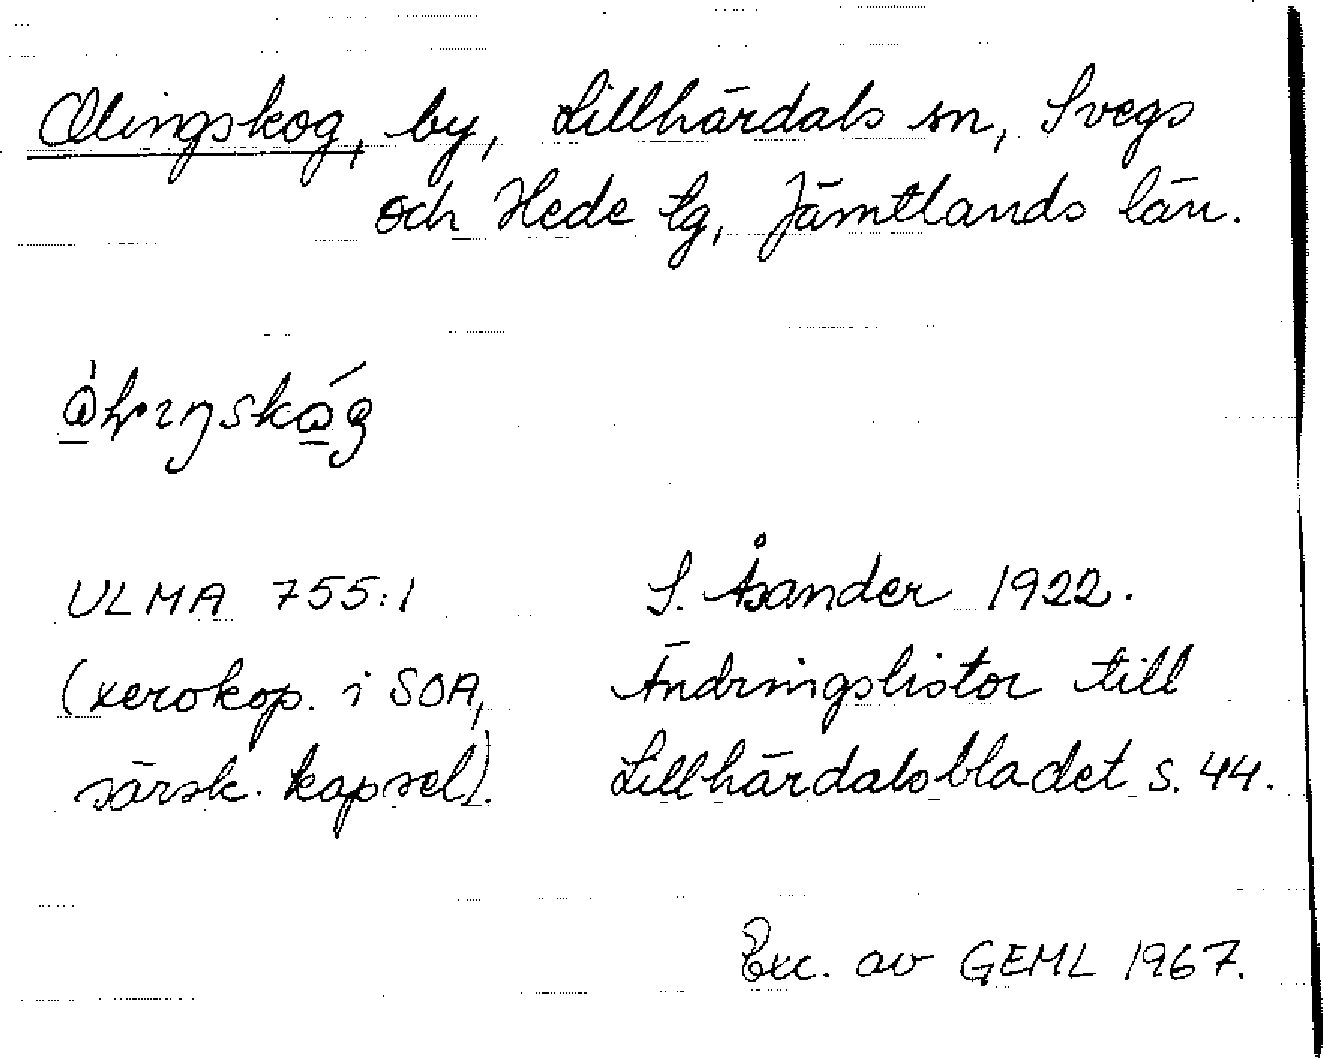 Olingskog, by, Lillhärdals sn, Svegs
och Hede tg, Jämtlands län.
ULMA 755:1 S. Åsander 1922.
(xerokop. i SOA, Ändringslistor till
särsk. kapsel). Lillhärdalsbladet s. 44.
Exc. av GEML 1967.